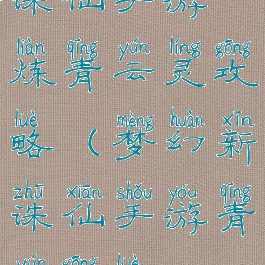 诛仙手游
liàn qīng yún líng gōng
炼青云灵攻
lüè mèng huàn xīn
略(梦幻新
zhū xiān shǒu yóu qīng
诛仙手游青
yún gōng lüè